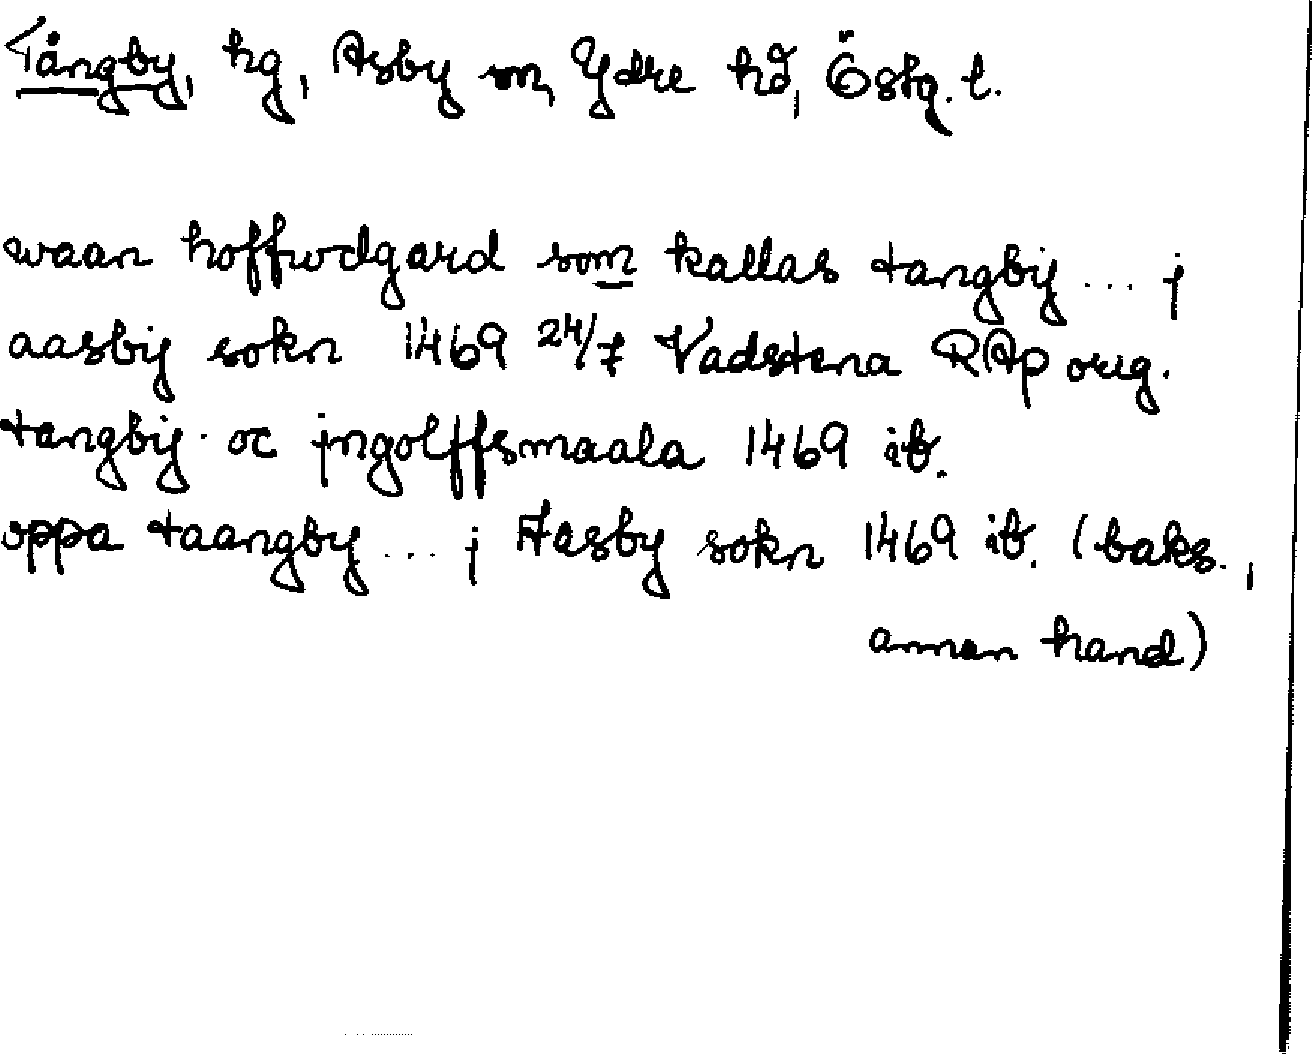 Tångby, hg, Asby sn, Ydre hd, Östg. l.
waan hoffwdgard som kallas tangbij ... j
aasbij sokn 1469 24/7 Vadstena RAp orig.
tangbij. oc jngolffsmaala 1469 ib.
oppa taangby ... j Aasby sokn 1469 ib. (baks.,
annan hand)